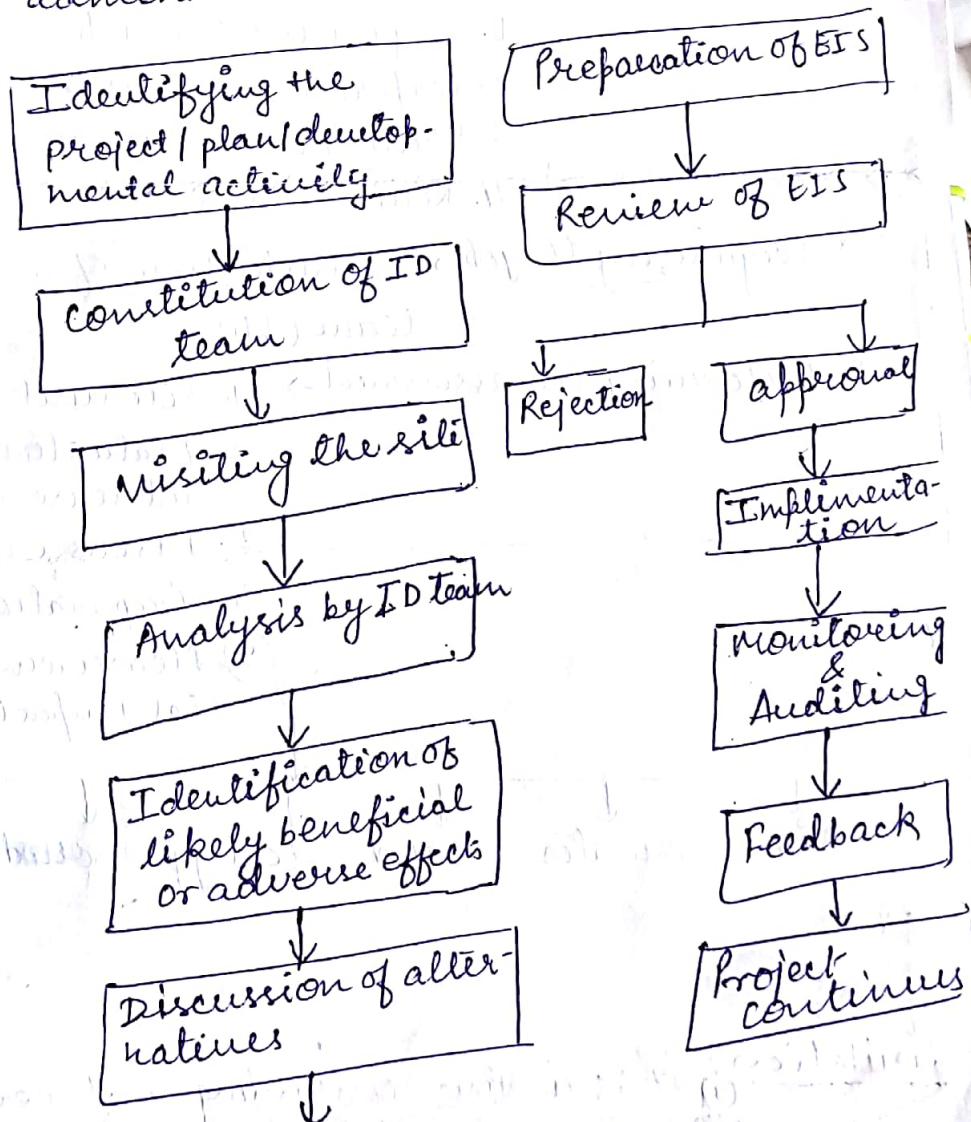 Identifying the
project / plan / develop-
mental activity
Constitution of ID
team
Visiting the site
Analysis by ID team
Identification of
likely beneficial
or adverse effects
Discussion of alter-
natives
Preparation of EIS
Review of EIS
Rejection
approval
Implimenta-
tion
Monitoring
&
Auditing
Feedback
Project
continues